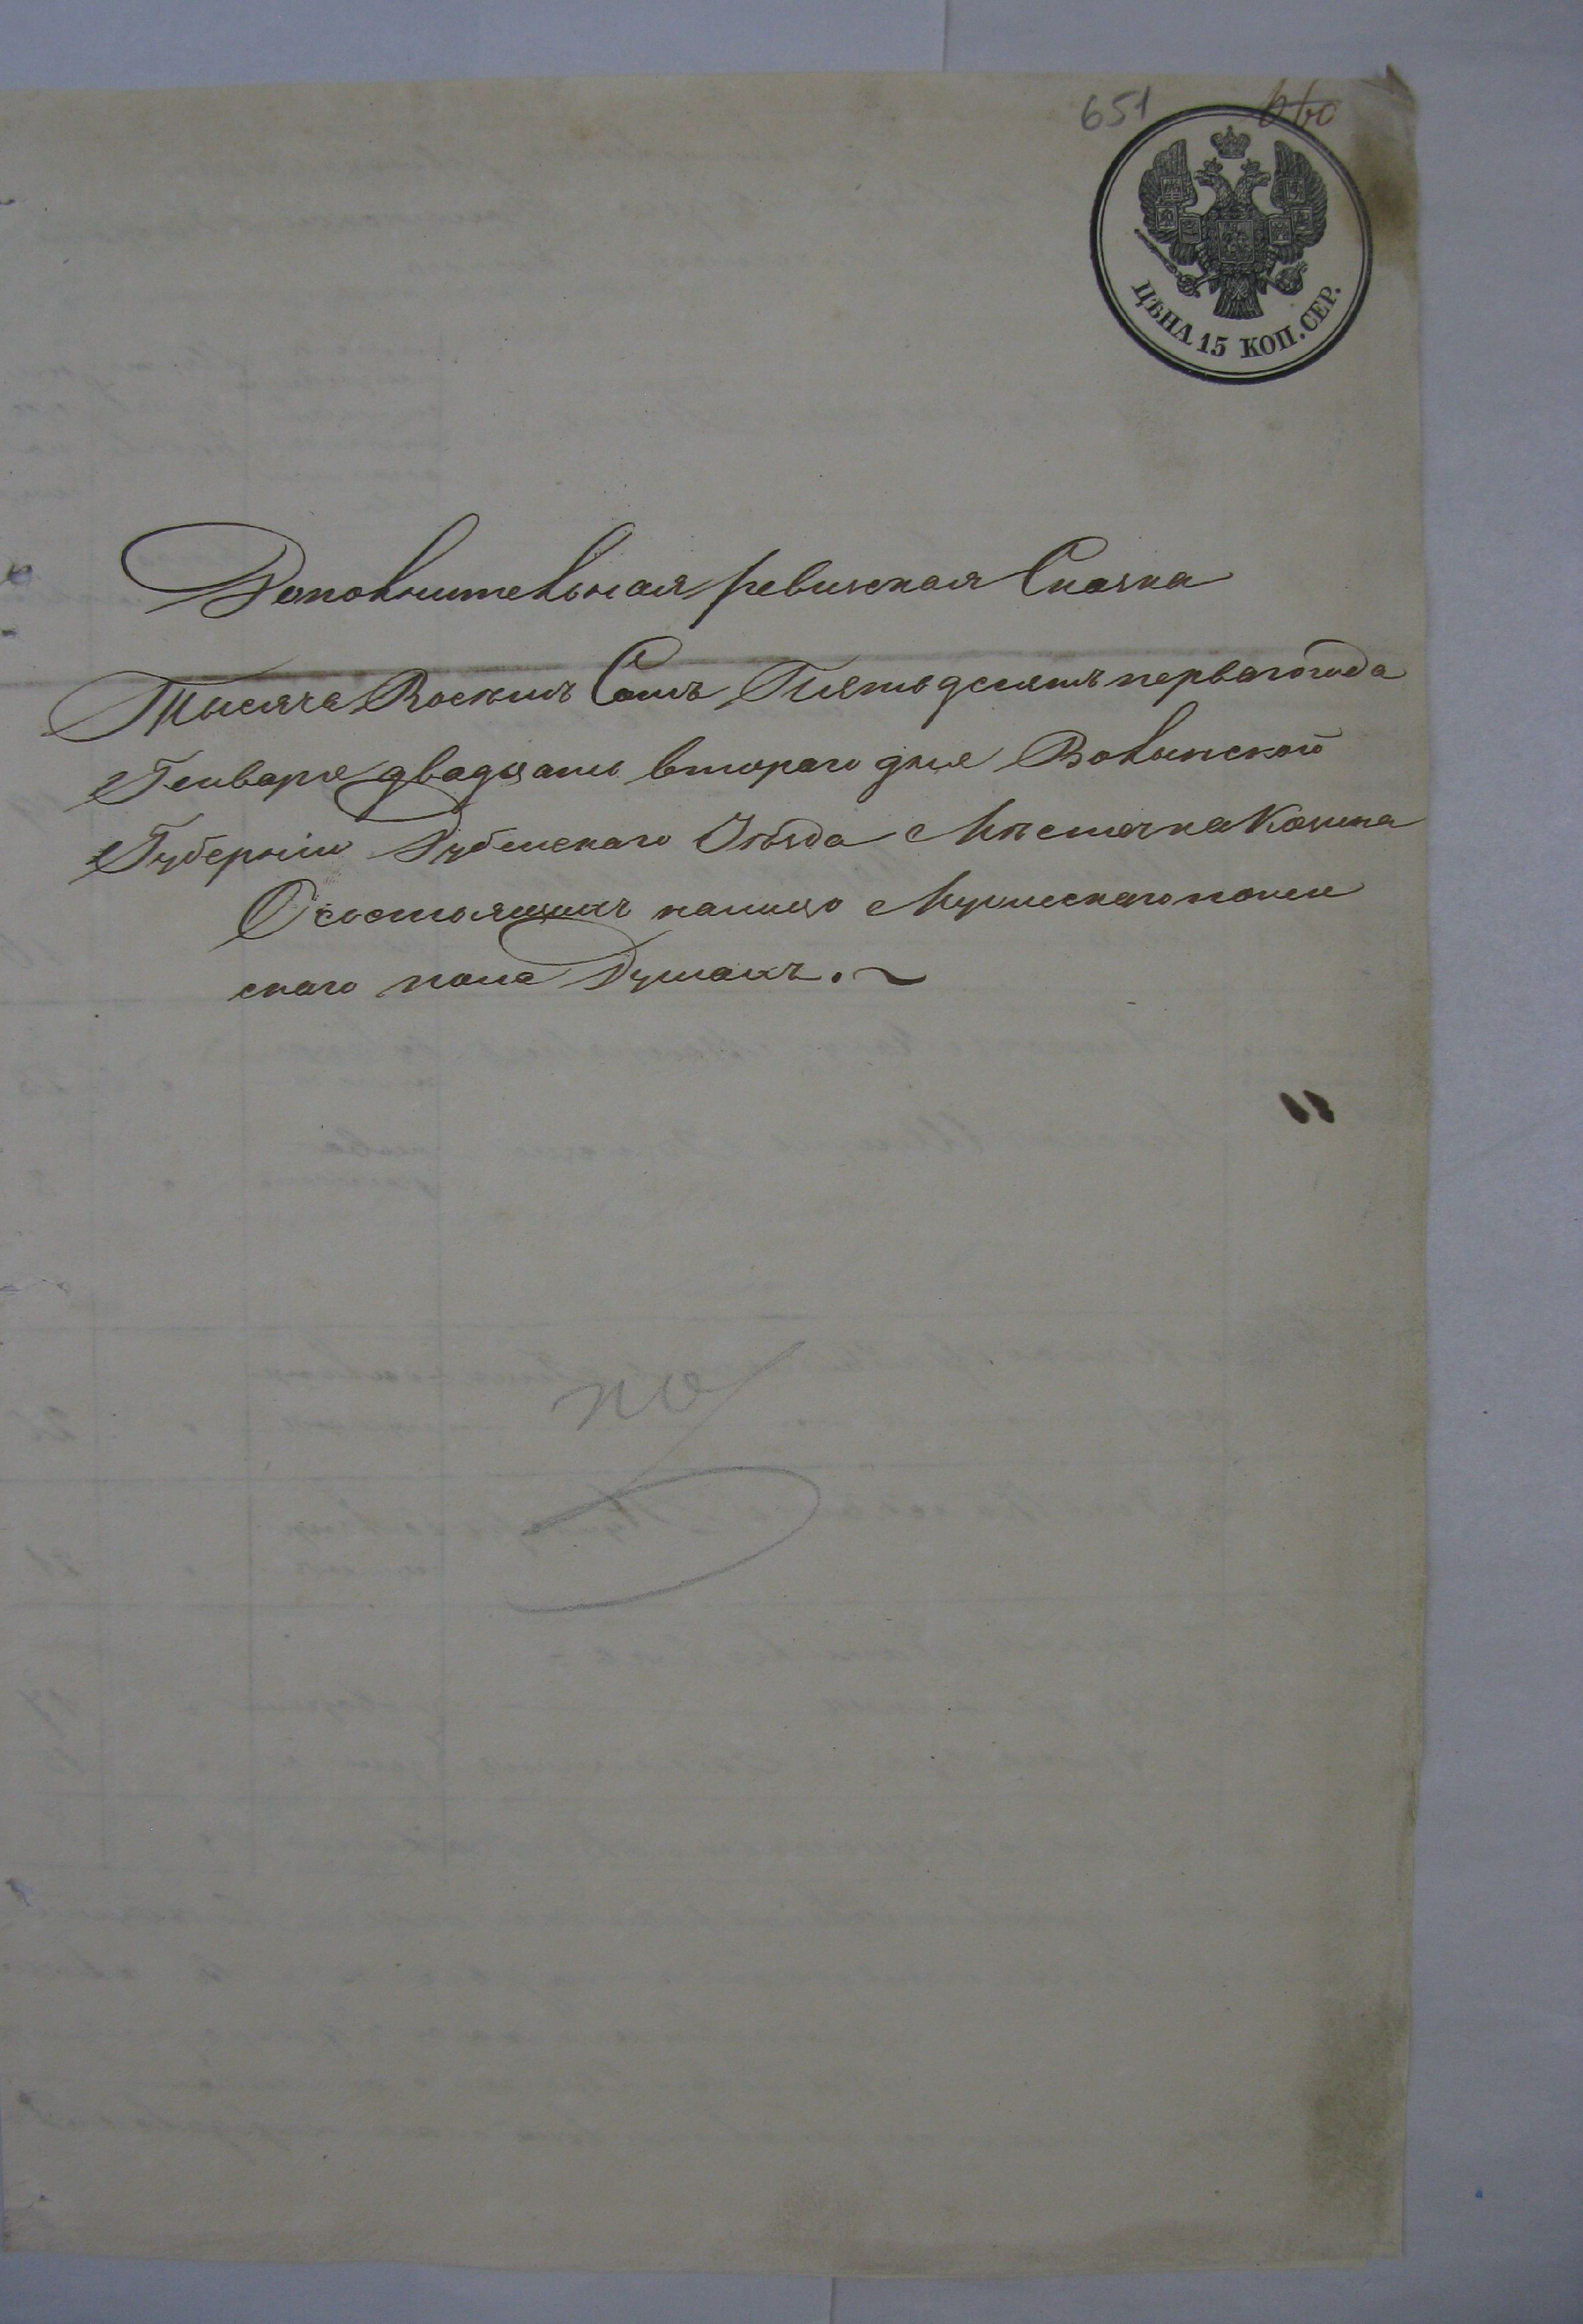 651
660
ЦѢНА 15 КОП. СЕР.
Дополнительная ревизская Сказка
Тысяча Восемь Сотъ Пятьдесятъ перваго года
Генваря двадцать втораго дня Волынской
Губерніи Дубенскаго Уѣзда Мѣстечка Козина
О состоящихъ налицо Мужескаго и женс
скаго пола Душахъ.